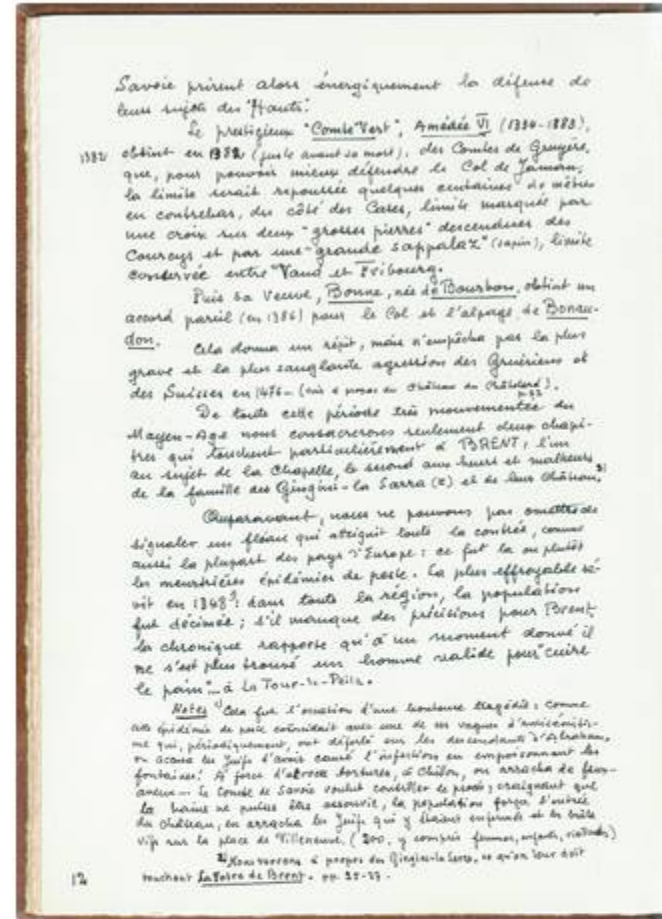 Savoie prirent alors énergiquement la défense de
leurs sujets des "Hauts".
Le prestigieux "Comte Vert", Amédée VI (1334-1383),
1382 obtint en 1382 (juste avant sa mort), des Comtes de Gruyère,
que, pour pouvoir mieux défendre le Col de Jaman,
la limite serait repoussée quelques centaines de mètres
en contrebas, du côté des Cases, limite marquée par
une croix sur deux "grosses pierres" descendues des
Courcys et par une "grande sappalaz" (sapin), limite
conservée entre Vaud et Fribourg.
Puis sa veuve, Bonne, née de Bourbon, obtint un
accord pareil (en 1386) pour le Col et l'alpage de Bonau-
don.
Cela donna un répit, mais n'empêcha pas la plus
grave et la plus sanglante agression des Gruériens et
des Suisses en 1476 - (voir à propos du Château du Châtelard).
De toute cette période très mouvementée du
Moyen-Age nous consacrerons seulement deux chapi-
tres qui touchent particulièrement à BRENT; l'un
au sujet de la Chapelle, le second aux heurs et malheurs
de la famille des Gingins-La Sarra (z) et de leur Château. 2)
Auparavant, nous ne pouvons pas omettre de
signaler un fléau qui atteignit toute la contrée, comme
aussi la plupart des pays d'Europe: ce fut la ou plutôt
les meurtrières épidémies de peste. La plus effroyable sé-
vit en 1348 1): dans toute la région, la population
fut décimée; s'il manque des précisions pour Brent,
la chronique rapporte qu'à un moment donné il
ne s'est plus trouvé un homme valide pour "cuire
le pain"... à La Tour-de-Peilz.
Notes 1) Cela fut l'occasion d'une honteuse tragédie: comme
cette épidémie de peste coïncidait avec une de ces vagues d'antisémitis-
me qui, périodiquement, ont déferlé sur les descendants d'Abraham,
on accusa les Juifs d'avoir causé l'infection en empoisonnant les
fontaines! A force d'atroces tortures, à Chillon, on arracha de faux-
aveux... Le Comte de Savoie voulut contrôler le procès; craignant que
la haine ne puisse être assouvie, la population força l'entrée
du château, en arracha les Juifs qui y étaient enfermés et les brûla
vifs sur la place de Villeneuve. (200, y compris femmes, enfants, vieillards)
2) Nous verrons à propos des Gingins-la Sarra, ce qu'on leur doit
touchant La Fosse de Brent. pp. 25-27.
12